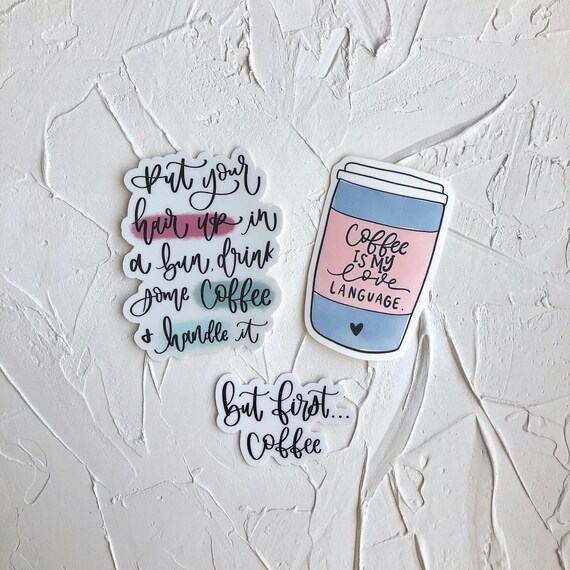 put your
hair up in
a bun, drink
some Coffee
& handle it
Coffee
IS MY
love
LANGUAGE.
but first...
Coffee